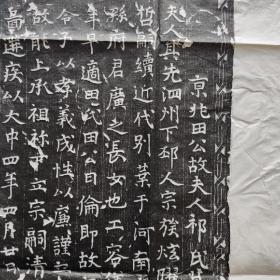 京兆田公故夫人祁氏
夫人其先泗州下邳人宗族炫曜
哲嗣續近代別業于河南
縣府君廣之長女也工容
年早適田氏田公曰倫即故
令子以孝義成性以廉謹
故能上承祖祢立宗嗣清
遘疾以大中四年四月廿